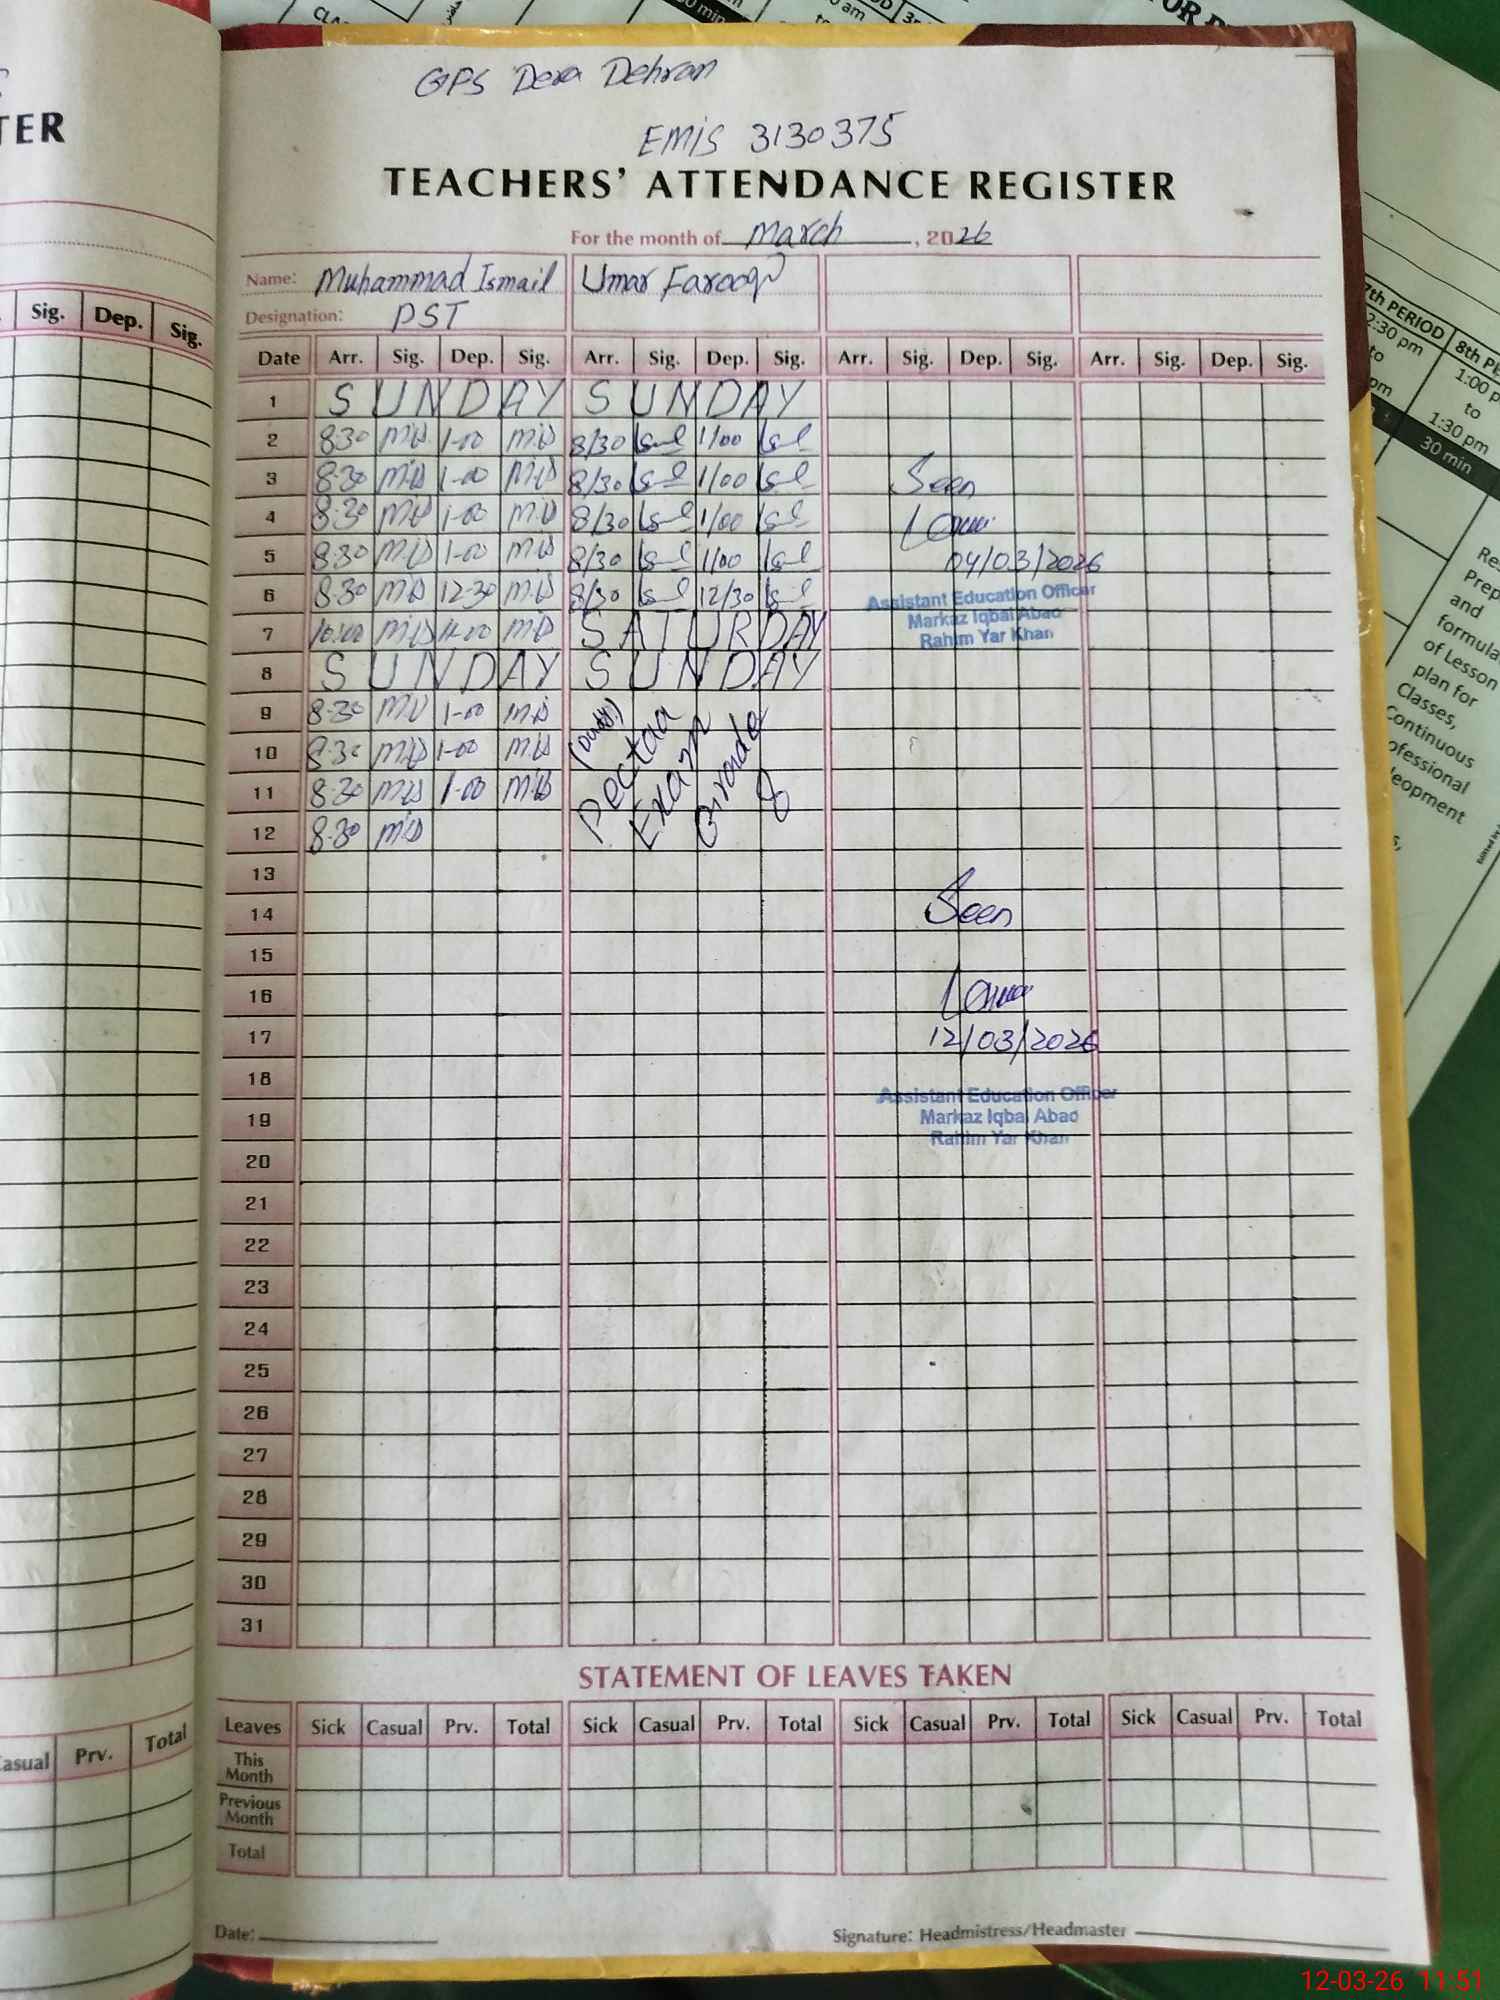 GPS Dera Dehran
EMIS 3130375
TEACHERS' ATTENDANCE REGISTER
For the month of March, 2026
Name: Muhammad Ismail Umar Farooq
Designation: PST
Date Arr. Sig. Dep. Sig. Arr. Sig. Dep. Sig. Arr. Sig. Dep. Sig. Arr. Sig. Dep. Sig.
1 SUNDAY SUNDAY
2 8-30 1-00 8/30 1/00
3 8-30 1-00 8/30 1/00 Seen
4 8-30 1-00 8/30 1/00
5 8-30 1-00 8/30 1/00 04/03/2026
6 8-30 12-30 8/30 12/30 Assistant Education Officer
Markaz Iqbal Abad
7 10:00 11-00 SATURDAY Rahim Yar Khan
8 SUNDAY SUNDAY
9 8-30 1-00
10 8-30 1-00
11 8-30 1-00
12 8-30
(Duty)
Pectaa
Exam
Grade
8
13
14 Seen
15
16
17 12/03/2026
18 Assistant Education Officer
19 Markaz Iqbal Abad
Rahim Yar Khan
20
21
22
23
24
25
26
27
28
29
30
31
STATEMENT OF LEAVES TAKEN
Leaves Sick Casual Prv. Total Sick Casual Prv. Total Sick Casual Prv. Total Sick Casual Prv. Total
This
Month
Previous
Month
Total
Date:
Signature: Headmistress/Headmaster
TER
Sig. Dep. Sig.
Casual Prv. Total
7th PERIOD 8th
2:30 pm 1:00
to to
pm 1:30 pm
30 min
and
of Lesson
plan for
Classes,
Continuous
12-03-26 11:51